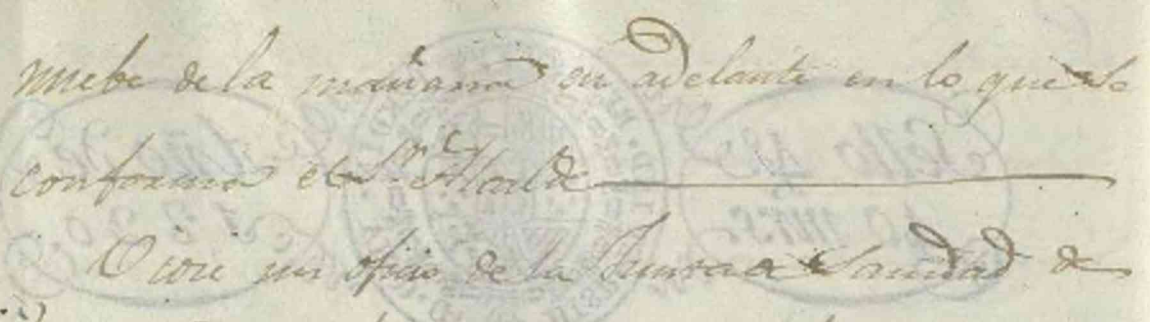 nuebe de la mañana en adelante en lo que se
conformó el Sr. Alcalde
un oficio de la Junta Sanidad de